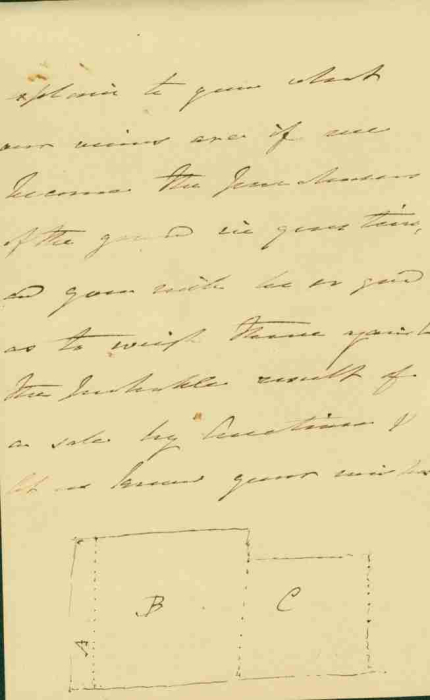 explain to you what
our views are if we
become the purchasers
of the ground in question,
and you will be so good
as to weigh these against
the probable result of
a sale by Auction &
let us know your wishes
B
C
A